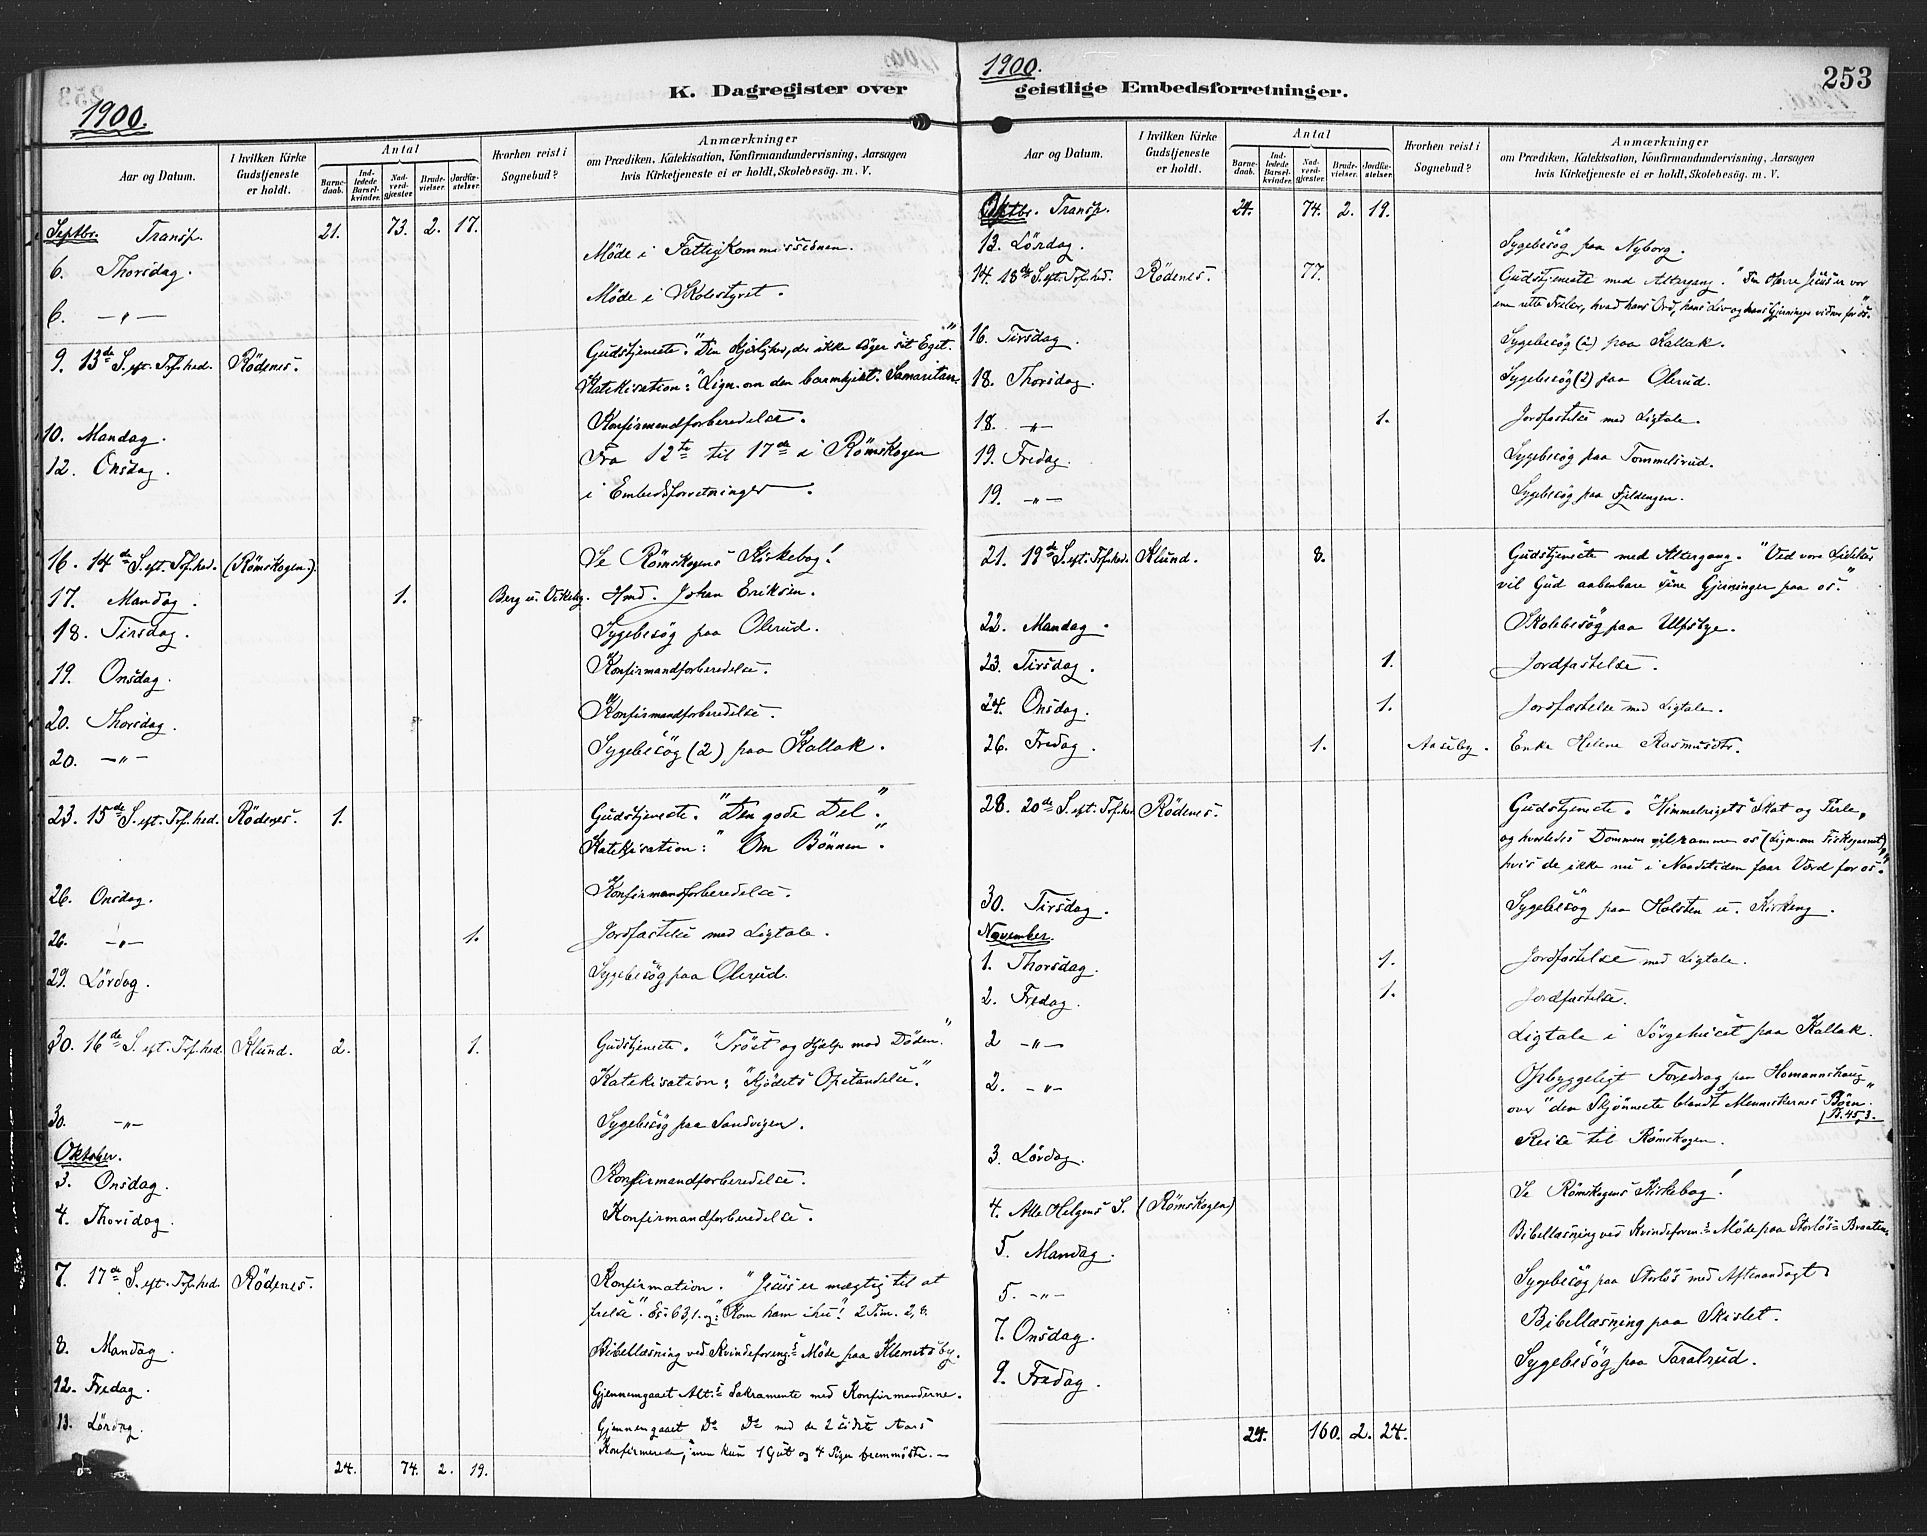 1900.
K. Dagregister over
Aar og Datum.
I hvilken Kirke Gudstjeneste er holdt.
Antal
Barnedaab.
Indledede Barselkvinder.
Nadverdgjæster.
Brudevielser.
Jordfæstelser.
Hvorhen reist i Sognebud?
Anmærkninger
om Prædiken, Katekisation, Konfirmandundervisning, Aarsagen
hvis Kirketjeneste ei er holdt, Skolebesøg. m. V.
Septbr. Transp. 21. 73. 2. 17.
6. Thorsdag. Møde i Fattigkommissionen.
6. —"— Møde i Skolestyret.
9. 13de S. eft. Tref.hed. Rødenes. Gudstjeneste. "Den Kjærlighed, der ikke søger sit Eget."
Katekisation: "Lign. om den barmhjert. Samaritan.
10. Mandag. Konfirmandforberedelse.
12. Onsdag. Fra 12te til 17de i Rømskogen
i Embedsforretninger.
16. 14de S. eft. Tref.hed. (Rømskogen.) Se Rømskogens Kirkebog!
17. Mandag. 1. Berg u. Vikeby. Hmd. Johan Eriksen.
18. Tirsdag. Sygebesøg paa Olerud.
19. Onsdag. Konfirmandforberedelse.
20. Thorsdag. Konfirmandforberedelse.
20. —"— Sygebesøg (2) paa Kallak.
23. 15de S. eft. Tref.hed. Rødenes. 1. Gudstjeneste. "Den gode Del".
Katekisation: "Om Bønnen".
26. Onsdag. Konfirmandforberedelse.
26. —"— 1. Jordfæstelse med Ligtale.
29. Lördag. Sygebesøg paa Olerud.
30. 16de S. eft. Tref.hed. Klund. 2. 1. Gudstjeneste. "Trøst og Hjælp mod Døden."
Katekisation: "Kjødets Opstandelse".
30. —"— Sygebesøg paa Sandvigen.
Oktober.
3. Onsdag. Konfirmandforberedelse.
4. Thorsdag. Konfirmandforberedelse.
7. 17de S. eft. Tref.hed. Rødenes. Konfirmation. "Jesus er mægtig til at
frelse". Es. 63,1. og: "Kom ham ihu!" 2 Tim. 2,8.
8. Mandag. Bibellæsning ved Kvindeforeng.s Møde paa Klemetsby.
12. Fredag. Gjennemgaaet Alt.s Sakramente med Konfirmanderne.
13. Lördag. Gjennemgaaet Do Do med de 2 sidste Aars
Konfirmerede, men kun 1 Gut og 4 Piger fremmødte. —
24. 74. 2. 19.
1900.
geistlige Embedsforretninger.
253
Aar og Datum.
I hvilken Kirke Gudstjeneste er holdt.
Antal
Barnedaab.
Indledede Barselkvinder.
Nadverdgjæster.
Brudevielser.
Jordfæstelser.
Hvorhen reist i Sognebud?
Anmærkninger
om Prædiken, Katekisation, Konfirmandundervisning, Aarsagen
hvis Kirketjeneste ei er holdt, Skolebesøg. m. V.
Oktbr. Transp. 24. 74. 2. 19.
13. Lördag. Sygebesøg paa Nyborg.
14. 18de S. eft. Tref.hed. Rødenes. 77. Gudstjeneste med Altergang. "Den Herre Jesus er vor
ene rette Frelser, hvad hans Ord, hans Liv og hans Gjerninger vidner for os."
16. Tirsdag. Sygebesøg (2) paa Kallak.
18. Thorsdag. Sygebesøg (2) paa Olerud.
18. —"— 1. Jordfæstelse med Ligtale.
19. Fredag. Sygebesøg paa Tommelsrud.
19. —"— Sygebesøg paa Fjeldengen.
21. 19de S. eft. Tref.hed. Klund. 8. Gudstjeneste med Altergang. "Ved vore Lidelser
vil Gud aabenbare sine Gjerninger paa os."
22. Mandag. Skolebesøg paa Ulfsbye.
23. Tirsdag. 1. Jordfæstelse.
24. Onsdag. 1. Jordfæstelse med Ligtale.
26. Fredag. 1. Aaseby. Enke Helene Rasmusdtr.
28. 20de S. eft. Tref.hed. Rødenes. Gudstjeneste. "Himmelrigets Skat og Perle,
og hvorledes Dommen vil ramme os (Lign. om Fiskegarnet),
hvis de ikke nu i Naadetiden faar Værd for os."
30. Tirsdag. Sygebesøg paa Holsten u. Kirkeng.
November.
1. Thorsdag. 1. Jordfæstelse med Ligtale.
2. Fredag. 1. Jordfæstelse.
2 —"— Ligtale i Sørgehuset paa Kallak.
2. —"— Opbyggeligt Foredrag paa Homannshaug
over "den Skjønneste blandt Menneskernes Børn."
Ps. 45,3.
3. Lördag. Reise til Rømskogen.
4. Alle Helgens S. (Rømskogen) Se Rømskogens Kirkebog!
5. Mandag. Bibellæsning ved Kvindeforen.s Møde paa Storløs-Braaten.
5. —"— Sygebesøg paa Storløs med Aftenandagt.
7. Onsdag. Bibellæsning paa Skislet.
9. Fredag. Sygebesøg paa Taralrud.
24. 160. 2. 24.